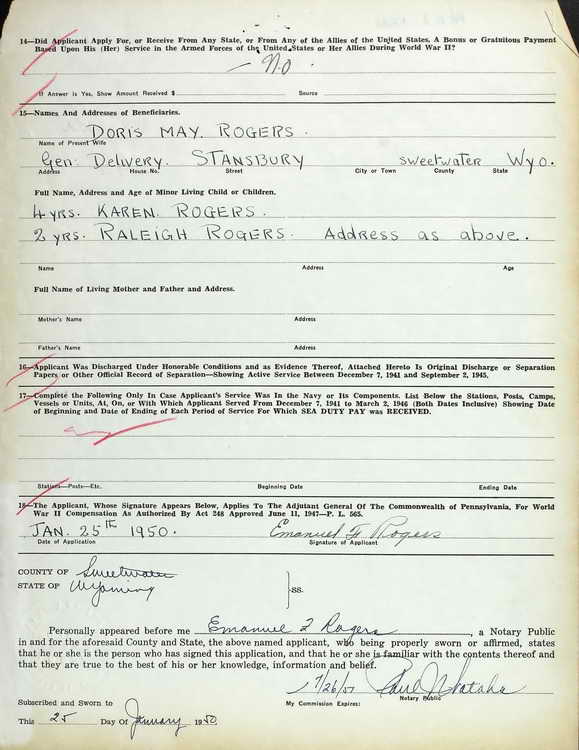 14—Did Applicant Apply For, or Receive From Any State, or From Any of the Allies of the United States, A Bonus or Gratuitous Payment
Based Upon His (Her) Service in the Armed Forces of the United States or Her Allies During World War II?
— No.
If Answer is Yes, Show Amount Received $ Source
15—Names And Addresses of Beneficiaries.
DORIS MAY. ROGERS.
Name of Present Wife
Gen. Delivery. STANSBURY SWEETWATER WYO.
Address House No. Street City or Town County State
Full Name, Address and Age of Minor Living Child or Children.
4 YRS. KAREN. ROGERS.
2 YRS. RALEIGH ROGERS. Address as above.
Name Address Age
Full Name of Living Mother and Father and Address.
Mother's Name Address
Father's Name Address
16—Applicant Was Discharged Under Honorable Conditions and as Evidence Thereof, Attached Hereto Is Original Discharge or Separation
Papers or Other Official Record of Separation—Showing Active Service Between December 7, 1941 and September 2, 1945.
17—Complete the Following Only In Case Applicant's Service Was In the Navy or Its Components. List Below the Stations, Posts, Camps,
Vessels or Units, At, On, or With Which Applicant Served From December 7, 1941 to March 2, 1946 (Both Dates Inclusive) Showing Date
of Beginning and Date of Ending of Each Period of Service For Which SEA DUTY PAY was RECEIVED.
Stations—Posts—Etc. Beginning Date Ending Date
18—The Applicant, Whose Signature Appears Below, Applies To The Adjutant General Of The Commonwealth of Pennsylvania, For World
War II Compensation As Authorized By Act 248 Approved June 11, 1947—P. L. 565.
JAN. 25th 1950. Emanuel F Rogers
Date of Application Signature of Applicant
COUNTY OF Sweetwater
STATE OF Wyoming
SS.
Personally appeared before me Emanuel F Rogers, a Notary Public
in and for the aforesaid County and State, the above named applicant, who being properly sworn or affirmed, states
that he or she is the person who has signed this application, and that he or she is familiar with the contents thereof and
that they are true to the best of his or her knowledge, information and belief.
7/26/51 Paul
Notary Public
Subscribed and Sworn to My Commission Expires:
This 25 Day Of January 1950